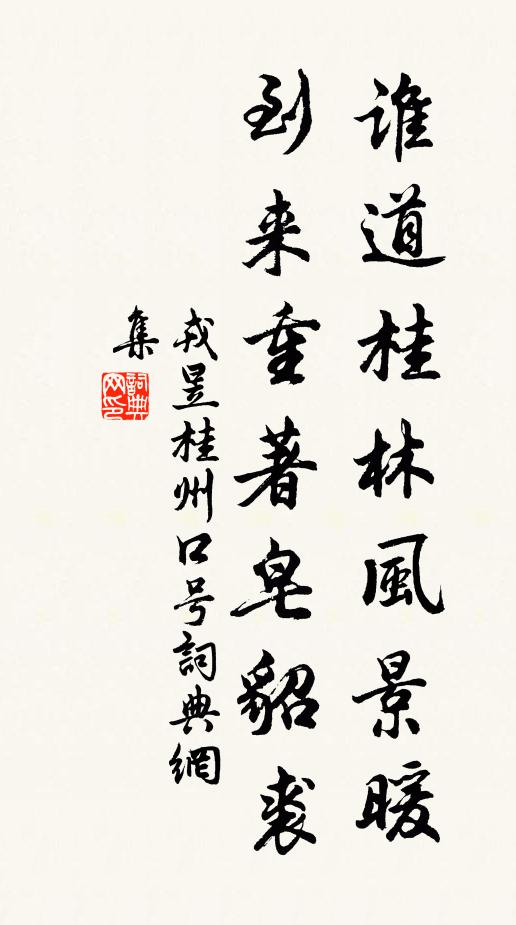 誰道桂林風景暖
到来重著皂貂裘
戎昱桂州口号詞典網
集
詞典网印